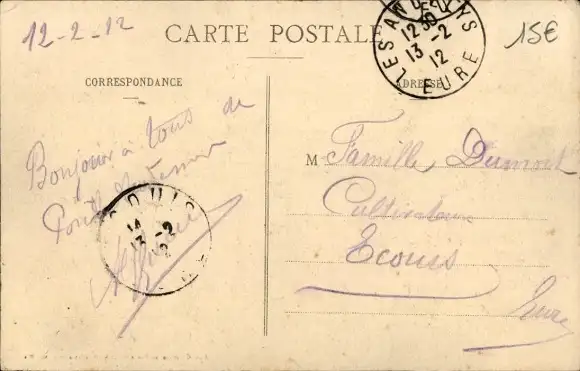 12-2-12
CARTE POSTALE
15€
LES ANDELYS
12 30
13 -2
12
EURE
CORRESPONDANCE
ADRESSE
Bonjour à tous de
Pont
M Famille Dumont
Cultivateur
Ecouis
Eure
ECOUIS
13 -2
12